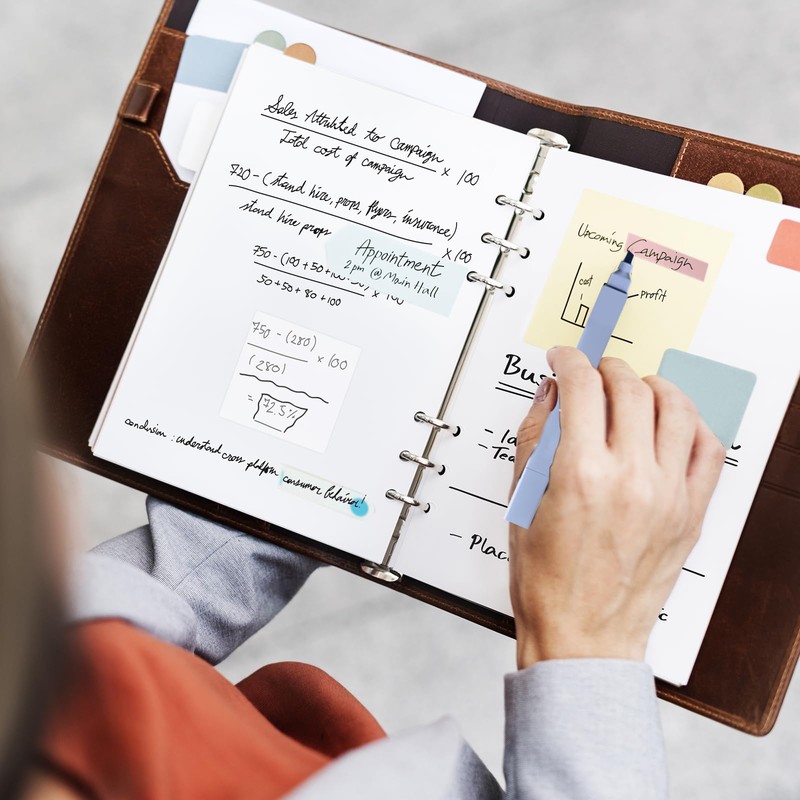 Sales Attributed to Campaign
Total cost of campaign
× 100
720 - (stand hire, props, flyers, insurance)
stand hire props
× 100
Appointment
2pm @ Main Hall
750 - (100 + 50 +
50 + 50 + 80 + 100
750 - (280)
(280)
× 100
= 72.5%
conclusion : understand cross platform consumer behavior!
Upcoming Campaign
cost
profit
Busi
- Place